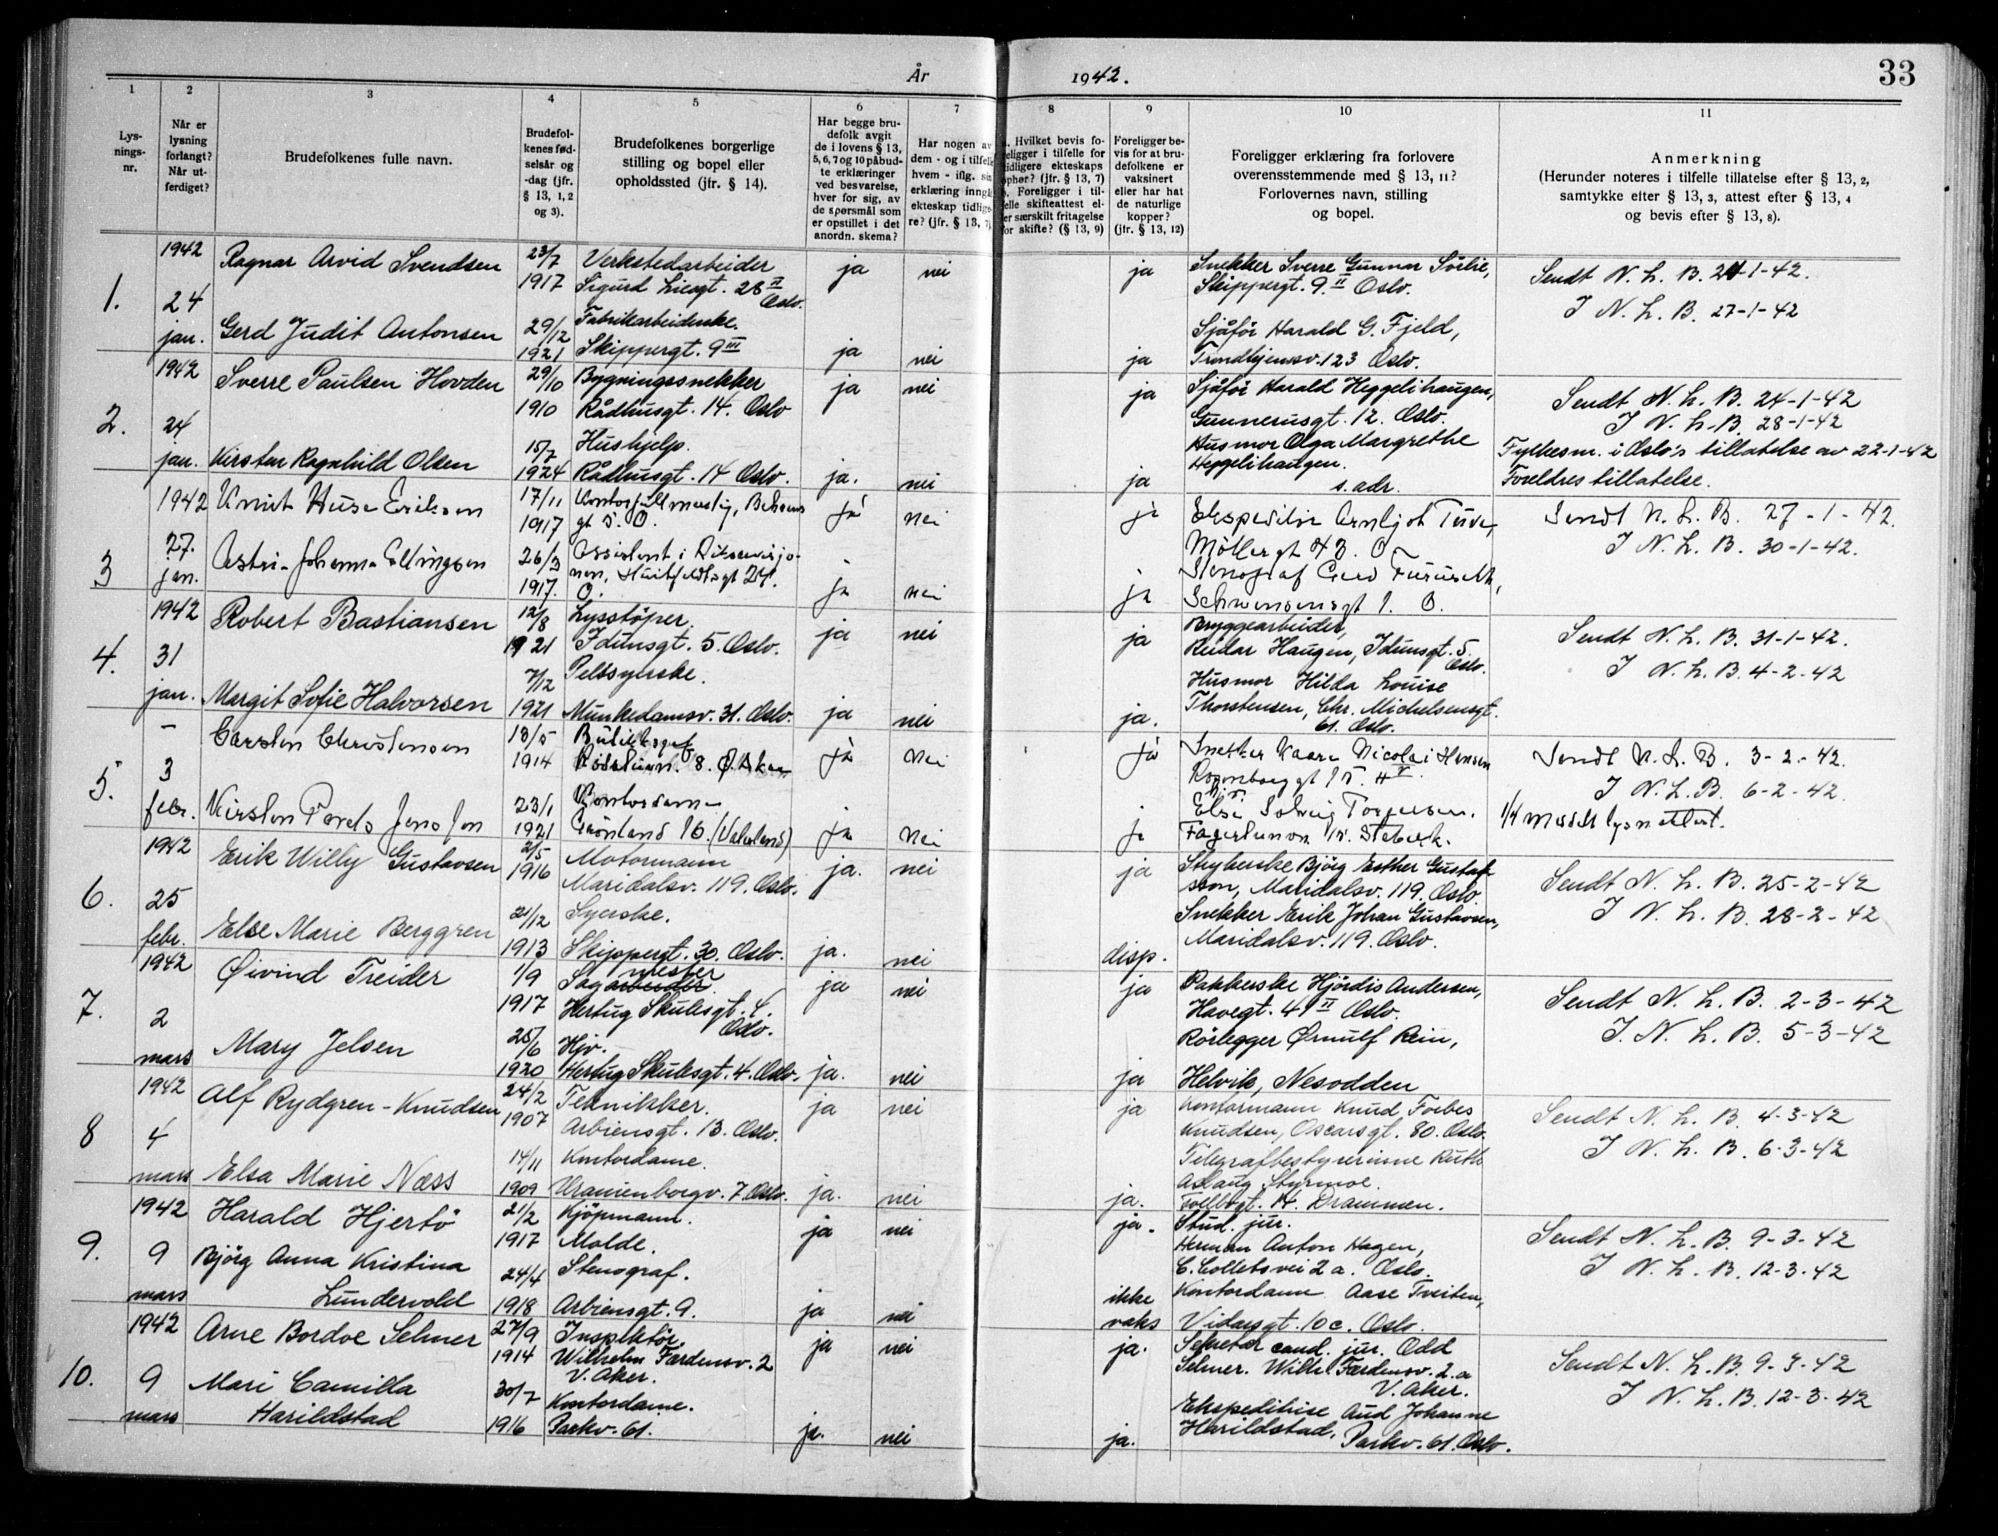 År 1942. 33
1 2 3 4 5 6 7 8 9 10 11
Lys-
nings-
nr.
Når er
lysning
forlangt?
Når ut-
ferdiget?
Brudefolkenes fulle navn.
Brudefol-
kenes fød-
selsår og
-dag (jfr.
§ 13, 1, 2
og 3).
Brudefolkenes borgerlige
stilling og bopel eller
opholdssted (jfr. § 14).
Har begge bru-
defolk avgit
de i lovens § 13,
5, 6, 7 og 10 påbud-
te erklæringer
ved besvarelse,
hver for sig, av
de spørsmål som
er opstillet i det
anordn. skema?
Har nogen av
dem - og i tilfelle
hvem - iflg. sin
erklæring inngått
ekteskap tidlige-
re? (jfr. § 13, 7)
Hvilket bevis fo-
religger i tilfelle for
tidligere ekteskaps
ophør? (jfr. § 13, 7)
Foreligger i til-
felle skifteattest el-
ler særskilt fritagelse
for skifte? (§ 13, 9)
Foreligger be-
vis for at bru-
defolkene er
vaksinert
eller har hat
de naturlige
kopper?
(jfr. § 13, 12)
Foreligger erklæring fra forlovere
overensstemmende med § 13, 11?
Forlovernes navn, stilling
og bopel.
Anmerkning
(Herunder noteres i tilfelle tillatelse efter § 13, 2,
samtykke efter § 13, 3, attest efter § 13, 4
og bevis efter § 13, 8).
1. 1942 24 jan.
Ragnar Arvid Svendsen 23/7 1917 Verkstedarbeider
Sigurd Liesgt. 28 II Oslo. ja nei ja
Snekker Sverre Gunnar Sörlie,
Skippergt. 9 II Oslo.
Sendt N. L. B. 24-1-42.
I N. L. B. 27-1-42
Gerd Judit Antonsen 29/12 1921 Fabrikarbeiderske.
Skippergt. 9 III ja nei ja
Sjåför Harald G. Fjeld,
Trondhjemsv. 123 Oslo.
2. 1942 24 jan.
Sverre Paulsen Hovden 29/10 1910 Bygningssnekker
Rådhusgt. 14. Oslo ja nei ja
Sjåför Harald Heggelihaugen,
Gunnerusgt. 12. Oslo.
Sendt N. L. B. 24-1-42
I N. L. B. 28-1-42
Kirsten Ragnhild Olsen 15/7 1924 Hushjelp.
Rådhusgt. 14 Oslo. ja. nei ja
Husmor Olga Margrethe
Heggelihaugen.
s. adr.
Fylkesm. i Oslo's tillatelse av 22-1-42
Foreldres tillatelse.
3 1942 27. jan.
Knut Huse Eriksen 17/11 1917
gt 5. O. ja nei ja
Möllergt 43. O
Sendt N. L. B. 27-1-42.
I N. L. B. 30-1-42.
Astri Johanne Ellingsen 26/3 1917. Assistent i Riksrevisjo-
nen, Huitfeldtsgt 24.
O. ja nei ja
Stenograf Gerd Furuseth,
Schwensensgt 1. O.
4. 1942 31 jan.
Robert Bastiansen 12/8 1921 Lysstöper.
Idunsgt. 5. Oslo. ja nei ja
Bryggearbeider,
Reidar Haugen, Idunsgt. 5.
Oslo.
Sendt N. L. B. 31-1-42.
I N. L. B. 4-2-42
Margit Sofie Halvorsen 7/12 1921 Pelssyerske.
Munkedamsv. 31. Oslo. ja nei ja.
Husmor Hilda Louise
Thorstensen, Chr. Michelsensgt.
61. Oslo.
5. - 3 febr.
Carsten Christensen 18/5 1914
8. Ø. Aker ja nei ja
Snekker Kaare Nicolai Hansen
Rosenborggt 15.
Sendt N. L. B. 3-2-42.
I N. L. B. 6-2-42.
Kirsten Jensen 23/1 1921 Kontordame
Grönland 16. ja nei ja
Else Solveig Torgersen.
Fagerlunvn 15. Stabekk.
6. 1942 25 febr.
Erik Willy Gustavsen 2/5 1916 Motormann
Maridalsv. 119. Oslo. ja. nei ja
Strykerske Björg Esther Gustaf
sson, Maridalsv. 119. Oslo
Sendt N. L. B. 25-2-42
I N. L. B. 28-2-42
Else Marie Berggren 21/12 1913 Syerske.
Skippergt. 30. Oslo. ja. nei disp.
Snekker Erik Johan Gustavsen,
Maridalsv. 119. Oslo.
7. 1942 2 mars
Øivind Treider 1/9 1917 Sagmester
Hertug Skulesgt. 4.
Oslo. ja nei ja
Pakkerske Hjördis Andersen,
Havegt. 4 II Oslo.
Sendt N. L. B. 2-3-42
I. N. L. B. 5-3-42
Mary Jelsen 25/6 1920 Hjv.
Hertug Skulesgt. 4. Oslo. ja. nei ja
Rörlegger Ørnulf Rein,
Helvik, Nesodden
8 1942 4 mars
Alf Rydgren-Knudsen 24/2 1907 Teknikker.
Arbiensgt. 13. Oslo. ja nei ja
Kontormann Knud Forbes
Knudsen, Oscarsgt. 80. Oslo.
Sendt N. L. B. 4-3-42
I N. L. B. 6-3-42
Elsa Marie Næss 14/11 1909 Kontordame.
Uranienborgv. 7 Oslo. ja. nei ja.
Telegrafbestyrerinne Ruth
Aslaug Styrmoe.
Tollbgt. 14. Drammen.
9. 1942 9 mars
Harald Hjertö 21/2 1917 Kjöpmann.
Molde. ja nei ja.
Stud. jur.
Herman Anton Hagen,
C. Colletsvei 2 a. Oslo.
Sendt N. L. B. 9-3-42
I N. L. B. 12-3-42
Björg Anna Kristina
Lundervold 24/4 1918 Stenograf.
Arbiensgt. 9. ja nei ikke vaks
Kontordame Aase Tveiten,
Vidarsgt. 10 c. Oslo.
10. 1942 9 mars
Arne Bordoe Selmer 27/9 1914 Inspektör
Wilhelm Færdensv. 2
V. Aker. ja nei ja.
Sekretær cand. jur. Odd
Selmer. Wilh. Færdensv. 2. a
V. Aker.
Sendt N. L. B. 9-3-42
I N. L. B. 12-3-42
Mari Camilla
Harildstad 30/7 1916 Kontordame.
Parkv. 61. ja. nei ja.
Ekspeditrise Aud Johanne
Harildstad, Parkv. 61. Oslo.